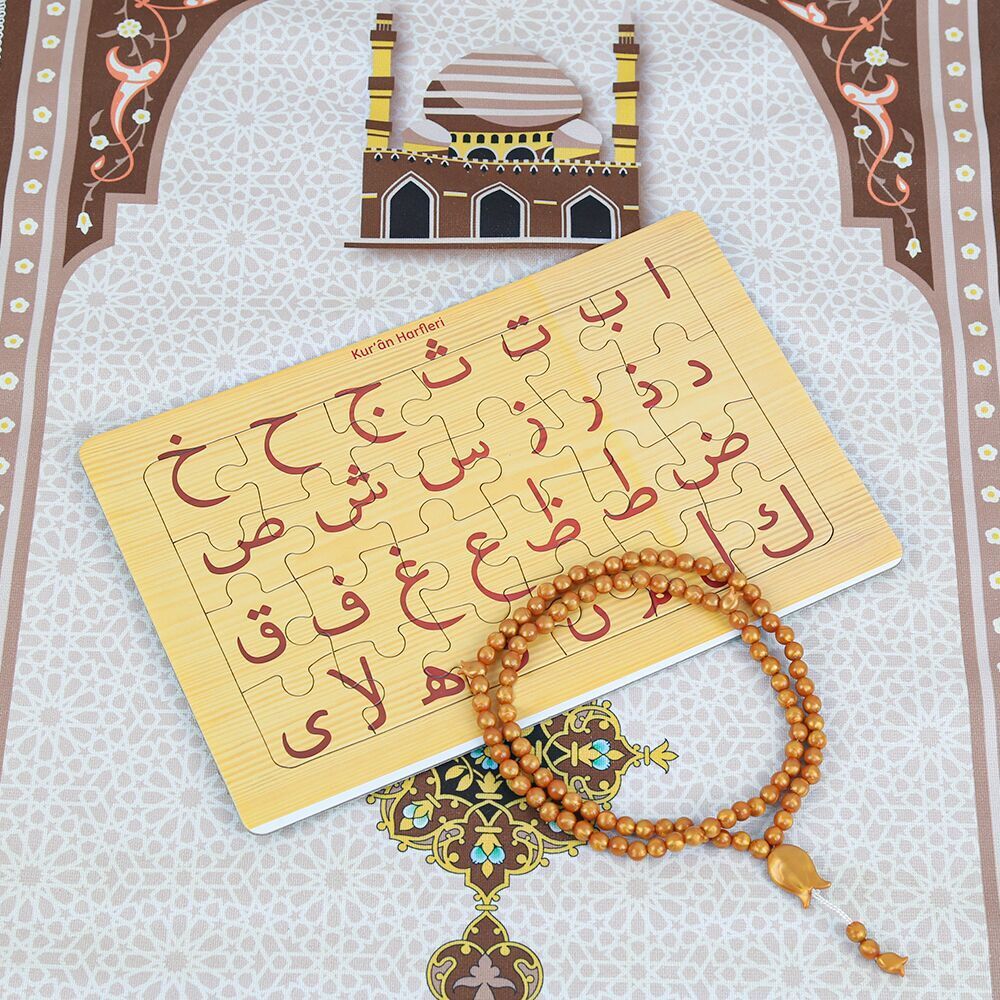 Kur'ân Harfleri
ا ب ت ث ج ح خ
د ذ ر ز س ش ص
ض ط ظ ع غ ف ق
ك ل م ن و ه لا ى